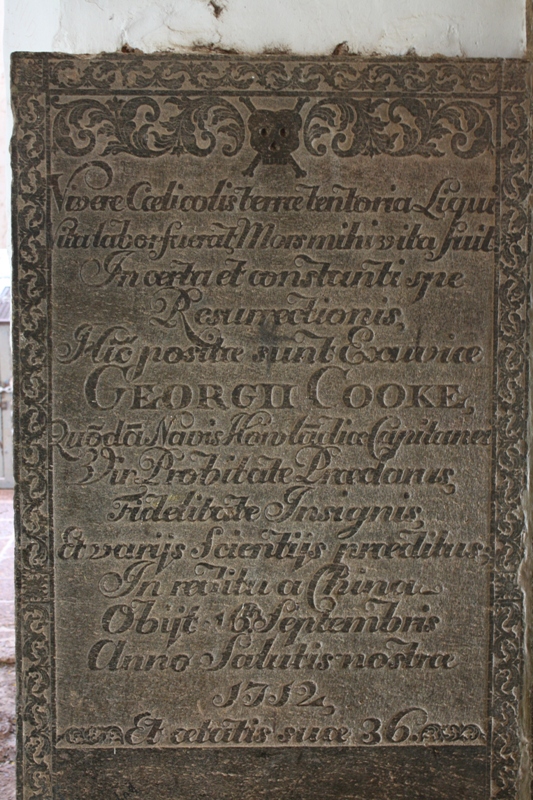 Vivere Cœlicolis terræ tentoria Liqui
Vita labor fuerat, Mors mihi vita fuit
In certa et constanti spe
Resurrectionis,
Hic positæ sunt Exuviæ
GEORGII COOKE,
Quōdā Navis Howlādiæ Capitanei
Vir Probitate Præclarus,
Fidelitate Insignis,
Et varijs Scientijs præditus,
In reditu a China
Obijt 16 Septembris
Anno Salutis nostræ
1712,
Et ætatis suæ 36.